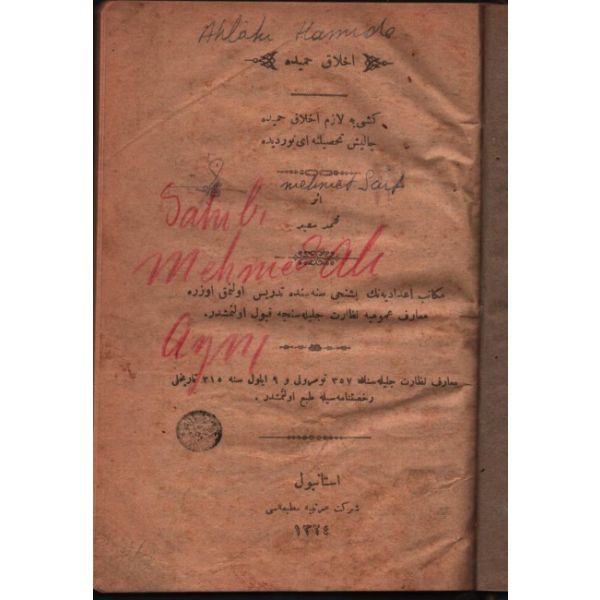 Ahlâkı Hamide
اخلاق حمیده
کشی یه لازم اخلاق حمیده
چالیش تحصیلنه ای نوردیده
mehmet Sait
اثر
محمد سعید
Sahibi
Mehmed Ali
Ayni
مکاتب اعدادیه نك بشنجی سنه سنده تدریس اولنمق اوزره
معارف عمومیه نظارت جلیله سنجه قبول اولنمشدر.
معارف نظارت جلیله سنك ٣٥٧ نومرولی و ٩ ایلول سنه ٣١٥ تاریخلی
رخصتنامه سیله طبع اولنمشدر.
استانبول
شرکت مرتبیه مطبعه سی
١٣٢٤